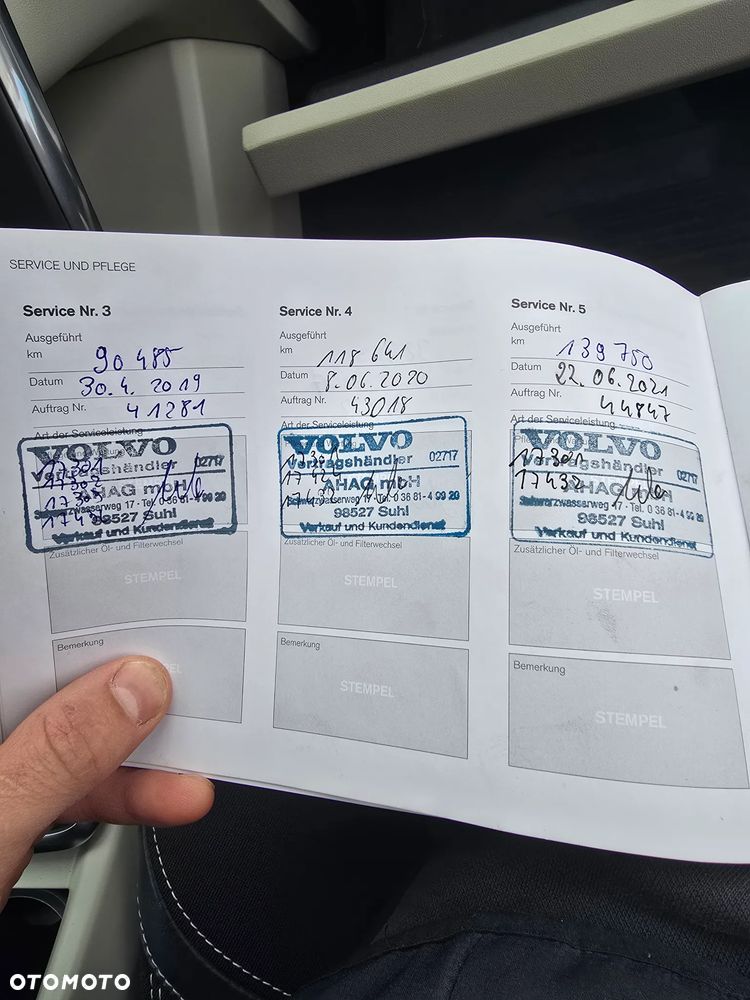 SERVICE UND PFLEGE
Service Nr. 3
Ausgeführt
km 90 485
Datum 30.4. 2019
Auftrag Nr. 41281
Art der Serviceleistung
VOLVO
Vertragshändler 02717
AHAG mbH
Schwarzwasserweg 17 · Tel. 0 36 81-4 99 20
98527 Suhl
Verkauf und Kundendienst
17301
17432
Zusätzlicher Öl- und Filterwechsel
STEMPEL
Bemerkung
Service Nr. 4
Ausgeführt
km 118 641
Datum 8.06.2020
Auftrag Nr. 43018
Art der Serviceleistung
VOLVO
Vertragshändler 02717
AHAG mbH
Schwarzwasserweg 17 · Tel. 0 36 81-4 99 20
98527 Suhl
Verkauf und Kundendienst
17432
Zusätzlicher Öl- und Filterwechsel
STEMPEL
Bemerkung
STEMPEL
Service Nr. 5
Ausgeführt
km 139 750
Datum 22.06.2021
Auftrag Nr. 44847
Art der Serviceleistung
VOLVO
Vertragshändler 02717
AHAG mbH
Schwarzwasserweg 17 · Tel. 0 36 81-4 99 20
98527 Suhl
Verkauf und Kundendienst
17301
17432
Zusätzlicher Öl- und Filterwechsel
STEMPEL
Bemerkung
STEMPEL
OTOMOTO